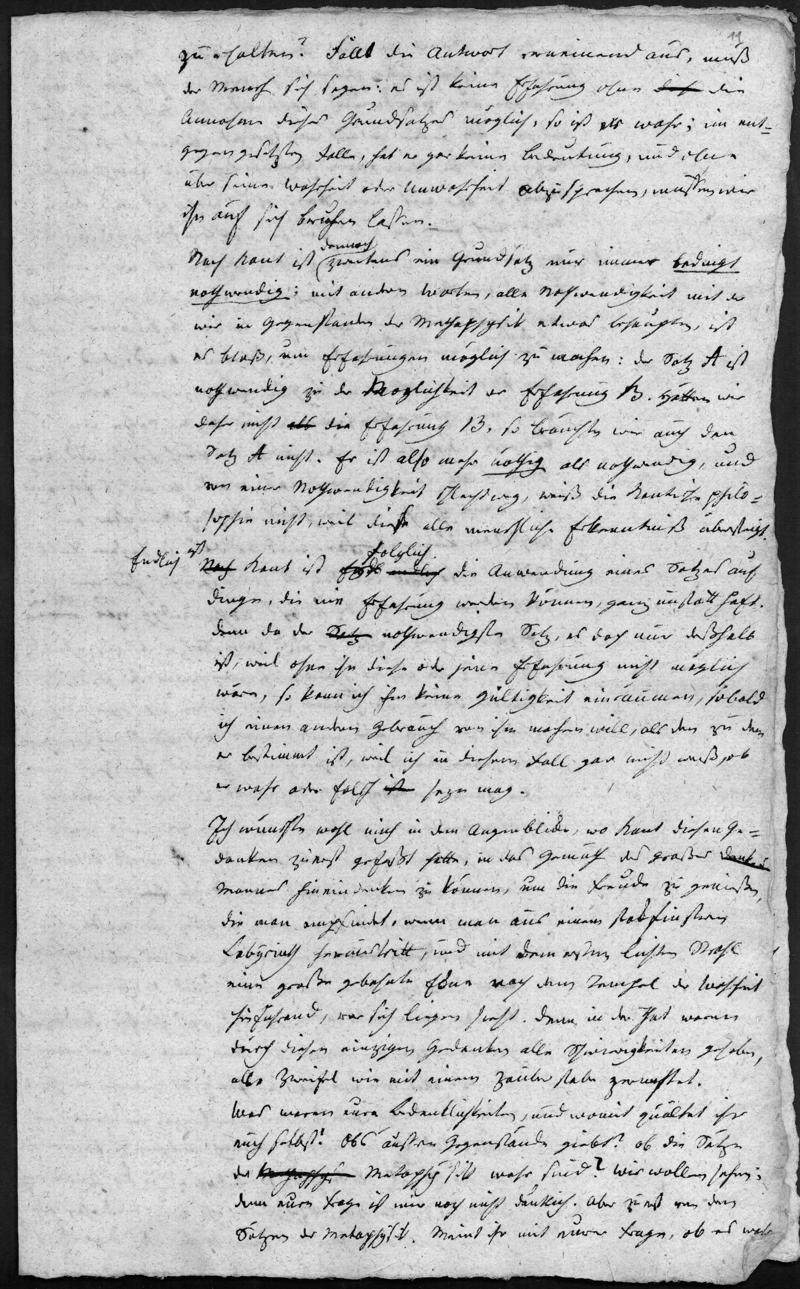 11
zu erhalten? Fällt die Antwort verneinend aus, muß
der Mensch sich sagen: es ist keine Erfahrung ohne die
Annahme dieses Grundsatzes möglich, so ist er wahr; im ent-
gegengesetzten Falle, hat er gar keine Bedeutung, und ohne
über seine Wahrheit oder Unwahrheit abzusprechen, müssen wir
ihn auf sich beruhen lassen.
Nach Kant ist dennoch zweitens ein Grundsatz nur immer bedingt
nothwendig; mit andern Worten, alle Nothwendigkeit mit der
wir in Gegenständen der Metaphysik etwas behaupten, ist
es bloß, um Erfahrungen möglich zu machen: der Satz A ist
nothwendig zu der Möglichkeit der Erfahrung B. Hätten wir
daher nicht die Erfahrung B, so brauchten wir auch den
Satz A nicht. Er ist also mehr nöthig als nothwendig, und
von einer Nothwendigkeit schlechtweg, weiß die Kantische Philo-
sophie nicht, weil diese alle menschliche Erkenntniß übersteigt.
Endlich ist
Nach Kant ist folglich die Anwendung eines Satzes auf
Dinge, die nie Erfahrung werden können, ganz unstatthaft.
denn da der Satz nothwendigste Satz, es doch nur deßhalb
ist, weil ohne ihn diese oder jene Erfahrung nicht möglich
wäre, so kann ich ihm keine Gültigkeit einräumen, sobald
ich einen andern Gebrauch von ihm machen will, als den zu dem
er bestimmt ist, weil ich in diesem Fall gar nicht weiß, ob
er wahr oder falsch ist seyn mag.
Ich wünschte wohl mich in dem Augenblicke, wo Kant diesen Ge-
danken zuerst gefaßt hatte, in das Gemüth des großen Denkers
Mannes hineindenken zu können, um die Freude zu genießen,
die man empfindet, wenn man aus einem stockfinstern
Labyrinth heraustritt, und mit dem ersten lichten Strahl
eine große gebahnte Ebne nach dem Tempel der Wahrheit
hinführend, vor sich liegen sieht. Denn in der That waren
durch diesen einzigen Gedanken alle Schwierigkeiten gehoben,
alle Zweifel wie mit einem Zauberstabe zernichtet.
Was waren eure Bedenklichkeiten, und womit quältet ihr
euch selbst? Obs äußere Gegenstände giebt? ob die Sätze
der Metaphysik wahr sind? Wir wollen sehen;
denn eure Frage ist mir noch nicht deutlich. Aber zuerst von den
Sätzen der Metaphysik. Meint ihr mit eurer Frage, ob es wahr